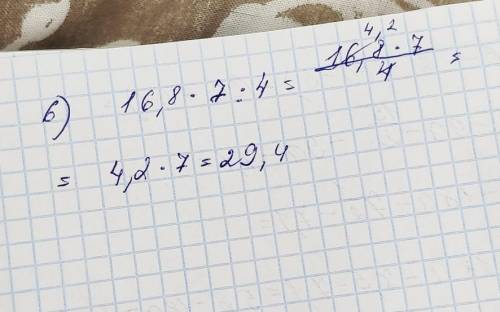 б) 16,8 · 7 : 4 = 16,8 · 7 / 4 4,2 =
= 4,2 · 7 = 29,4